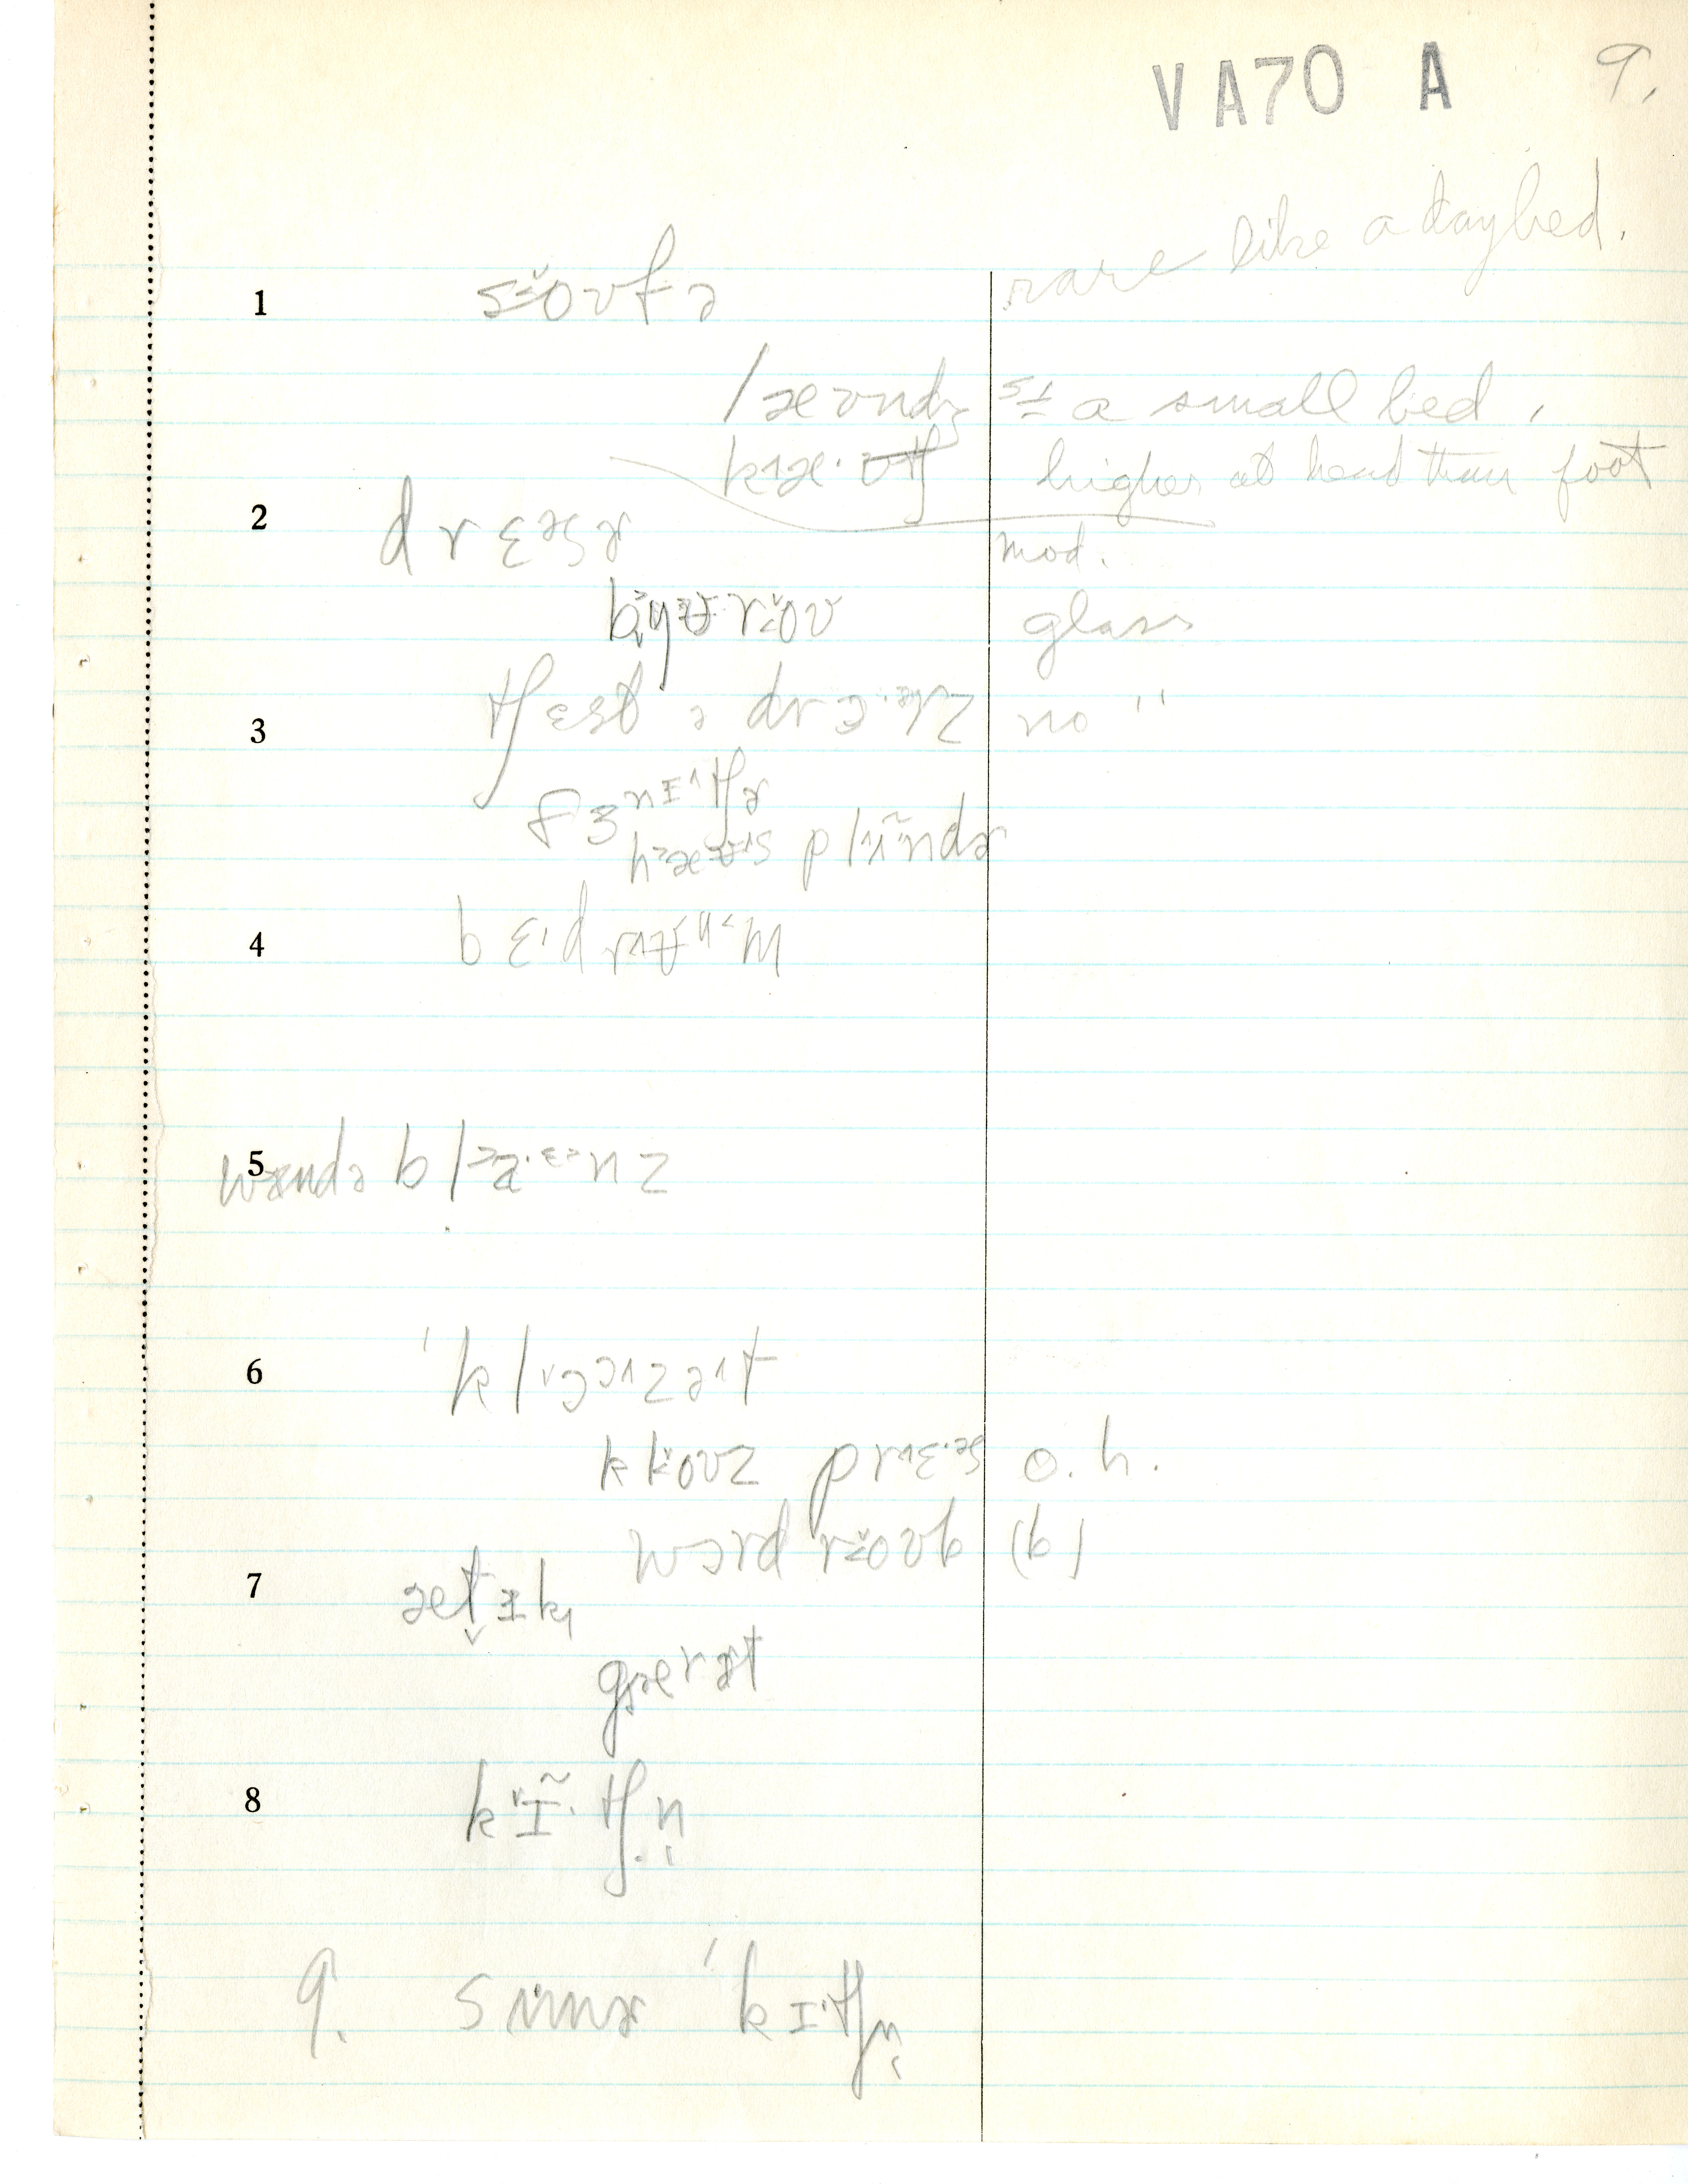 VA70 A 9.
rare like a daybed.
1 soʊfə
læʊndʒ = a small bed,
kæ·ʊtʃ higher at head than foot
2 drɛᵊsɚ mod.
bjʊroʊ glass
3 tʃɛst ə drɔ·ᵊz no "
fɜnɪtʃɚ
hæʊs plʌndɚ
4 bɛ·drʊum
5 wɪndə bla·ɛnz
6 ˈklɔzət
kloʊz prɛ·s o.h.
wɔrdroʊb (b)
7 ætɪk
gærət
8 kɪ̃·tʃn̩
9. sʌmɚ ˈkɪtʃn̩